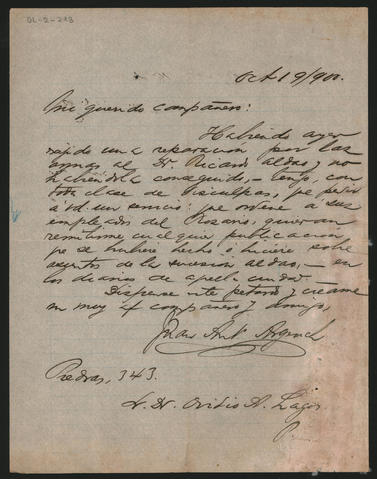 OL-2-273
Oct 19/900.
Mi querido compañero:
Habiendo ayer
pedido una reparacion por las
armas al Dr. Ricardo Aldao, y no
habiéndola conseguido, - tengo, con
toda clase de disculpas, que pedir
á Vd. un servicio: que ordene á sus
empleados del Rosario, quieran
remitirme cualquier publicacion
que se hubiere hecho ó hiciere sobre
asuntos de la sucesion Aldao, - en
los diarios de aquella ciudad.
Dispense este y creame
su muy compañero y amigo,
Juan Ant.
Piedras, 343.
Sr. Dr. Ovidio A. Lagos